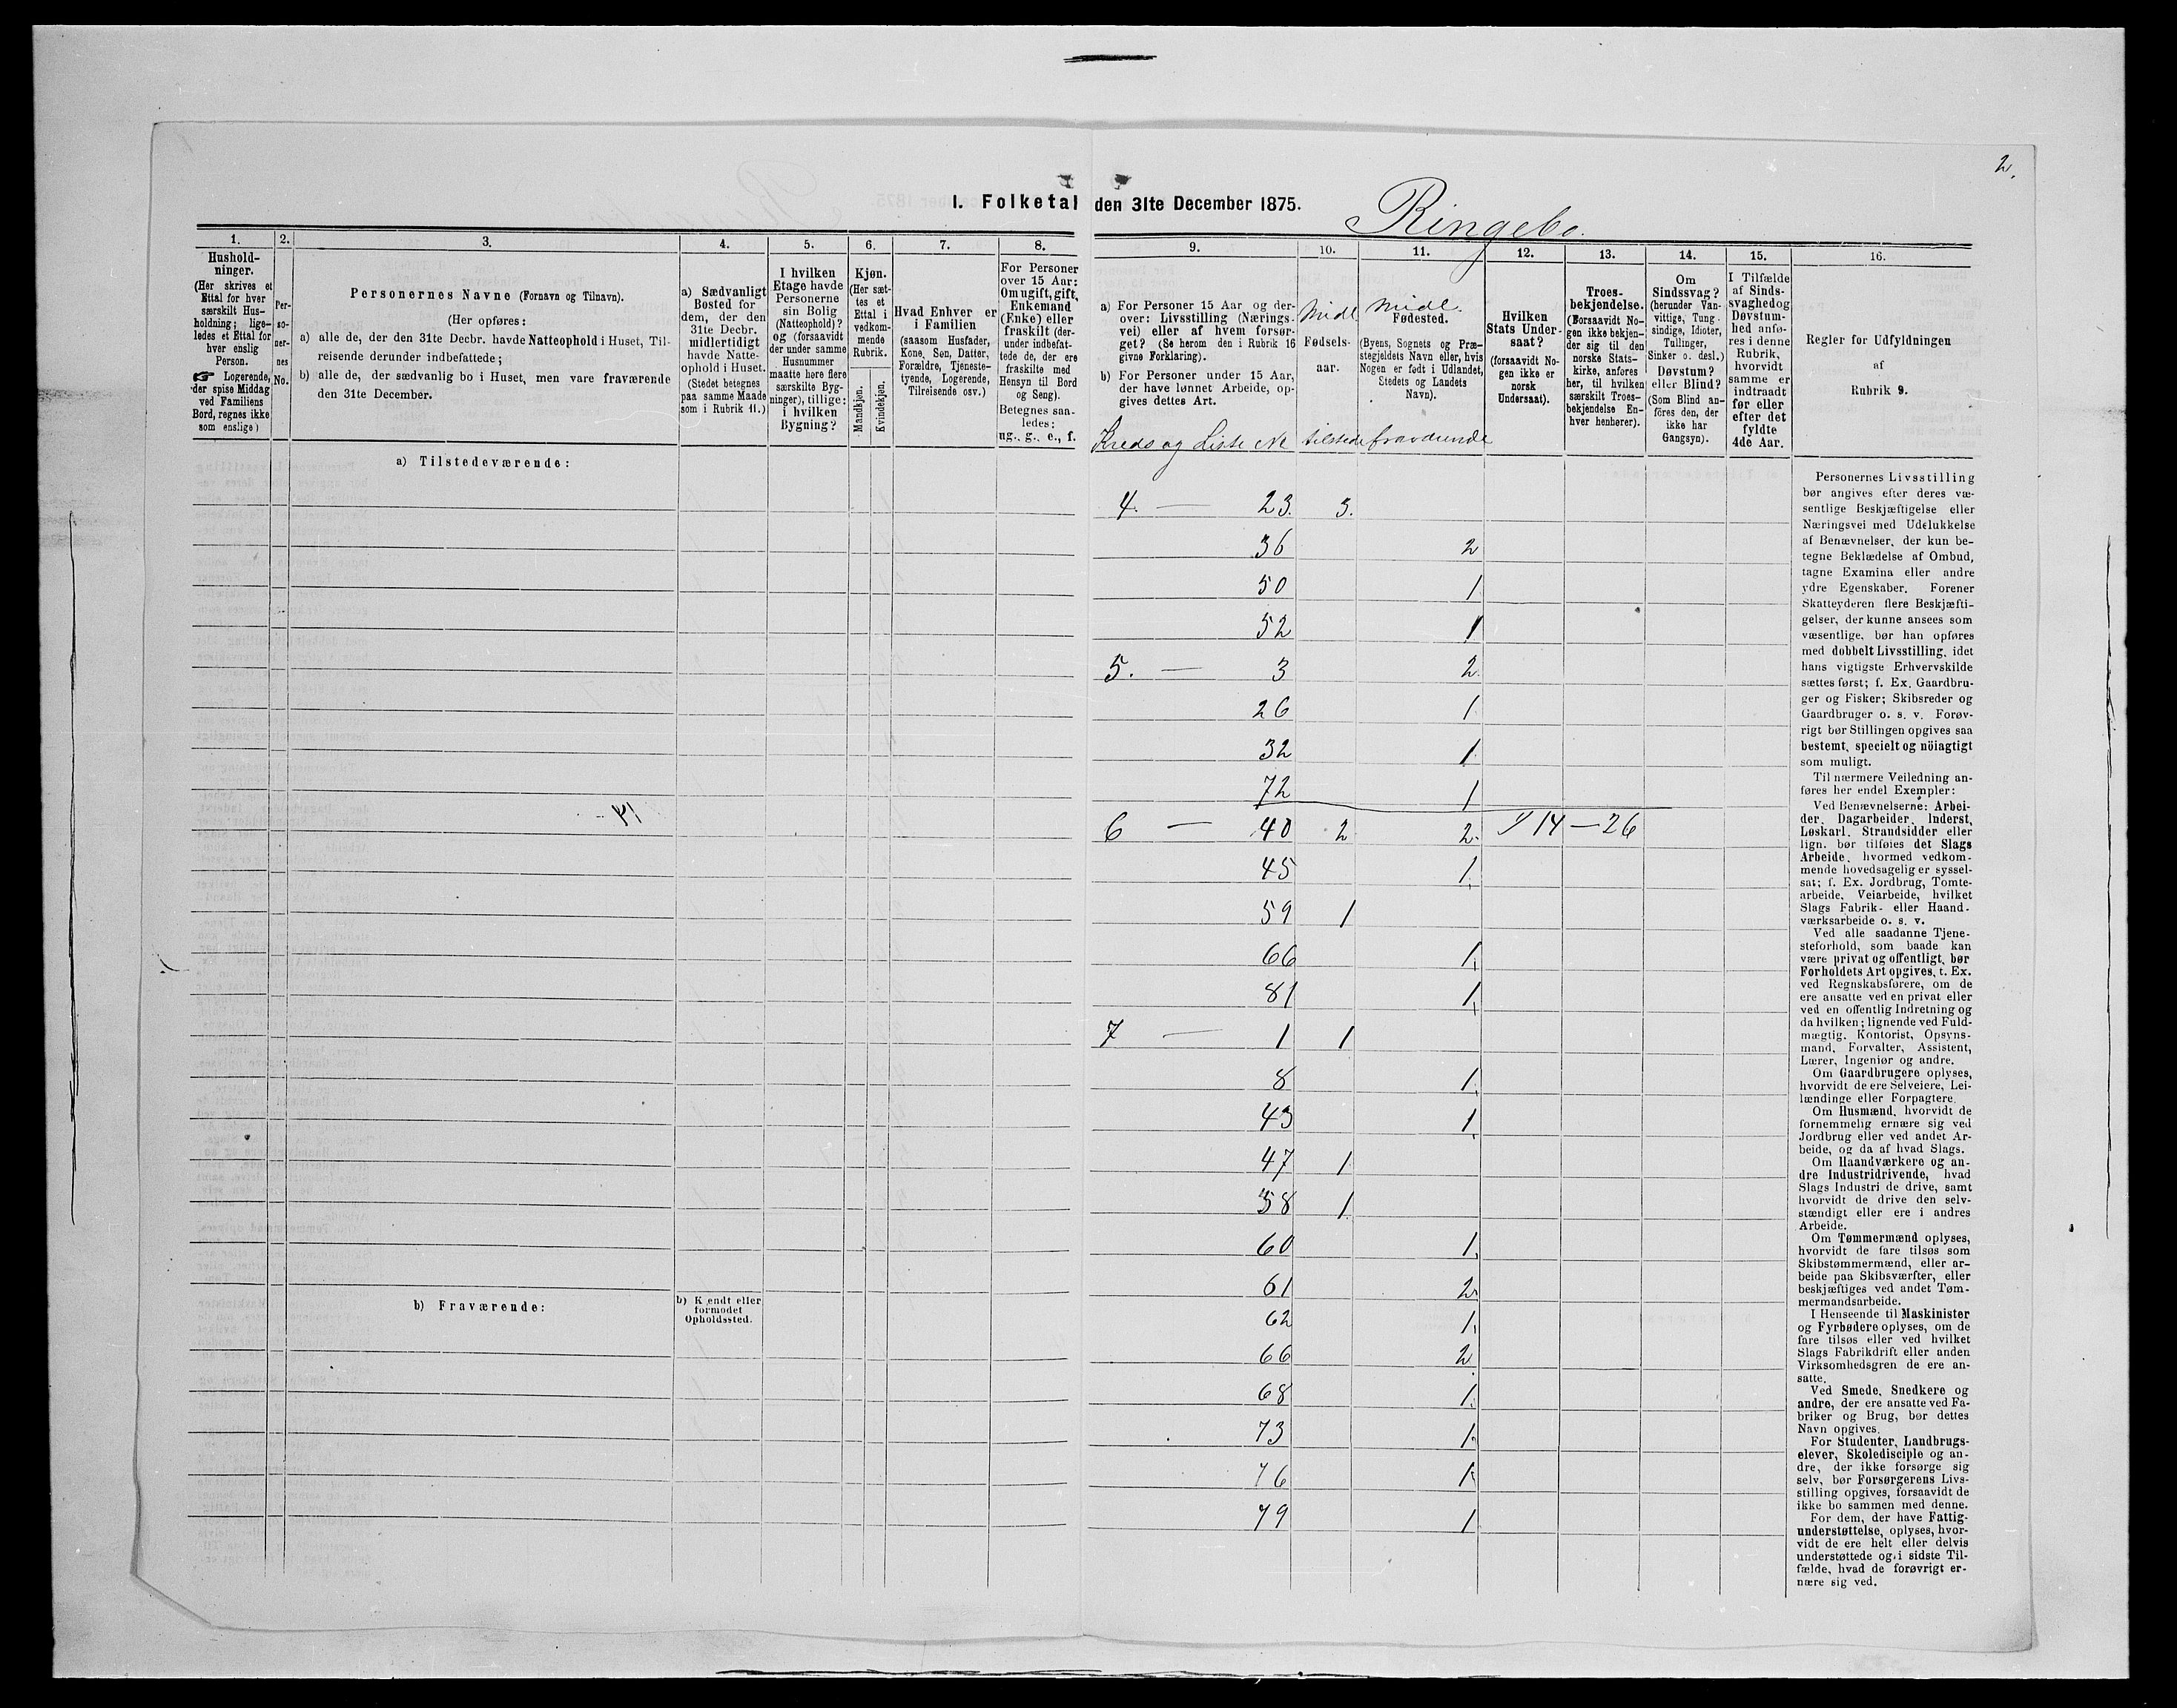 2.
I. Folketal den 31te December 1875.
Ringebo.
1.
2.
3.
4.
5.
6.
7.
8.
9.
10.
11.
12.
13.
14.
15.
16.
Hushold-
ninger.
(Her skrives et
Ettal for hver
særskilt Hus-
holdning; lige-
ledes et Ettal for
hver enslig
Person.
☞ Logerende,
der spise Middag
ved Familiens
Bord, regnes ikke
som enslige)
Per-
so-
ner-
nes
No.
Personernes Navne (Fornavn og Tilnavn).
(Her opføres:
a) alle de, der den 31te Decbr. havde Natteophold i Huset, Til-
reisende derunder indbefattede;
b) alle de, der sædvanlig bo i Huset, men vare fraværende
den 31te December.
a) Sædvanligt
Bosted for
dem, der den
31te Decbr.
midlertidigt
havde Natte-
ophold i Huset.
(Stedet betegnes
paa samme Maade
som i Rubrik 11.)
I hvilken
Etage havde
Personerne
sin Bolig
(Natteophold)?
og (forsaavidt
der under samme
Husnummer
maatte høre flere
særskilte Byg-
ninger), tillige:
i hvilken
Bygning?
Kjøn.
(Her sæt-
tes et
Ettal i
vedkom-
mende
Rubrik.
Mandkjøn.
Kvindekjøn.
Hvad Enhver er
i Familien
(saasom Husfader,
Kone, Søn, Datter,
Forældre, Tjeneste-
tyende, Logerende,
Tilreisende osv.)
For Personer
over 15 Aar:
Om ugift, gift,
Enkemand
(Enke) eller
fraskilt (der-
under indbefat-
tede de, der ere
fraskilte med
Hensyn til Bord
og Seng).
Betegnes saa-
ledes:
ug., g., e., f.
a) For Personer 15 Aar og der-
over: Livsstilling (Nærings-
vei) eller af hvem forsør-
get? (Se herom den i Rubrik 16
givne Forklaring).
b) For Personer under 15 Aar,
der have lønnet Arbeide, op-
gives dettes Art.
Midl
Fødsels-
aar.
midl.
Fødested.
(Byens, Sognets og Præ-
stegjeldets Navn eller, hvis
Nogen er født i Udlandet,
Stedets og Landets
Navn).
Hvilken
Stats Under-
saat?
(forsaavidt No-
gen ikke er
norsk
Undersaat).
Troes-
bekjendelse.
(Forsaavidt No-
gen ikke bekjen-
der sig til den
norske Stats-
kirke, anføres
her, til hvilken
særskilt Troes-
bekjendelse En-
hver henhører).
Om
Sindssvag?
(herunder Van-
vittige, Tung-
sindige, Idioter,
Tullinger,
Sinker o. desl.)
Døvstum?
eller Blind?
(Som Blind an-
föres den, der
ikke har
Gangsyn).
I Tilfælde
af Sinds-
svaghed og
Døvstum-
hed anfø-
res i denne
Rubrik,
hvorvidt
samme er
indtraadt
før eller
efter det
fyldte
4de Aar.
Regler for Udfyldningen
af
Rubrik 9.
Kreds og Liste No tilstede fraværende
a) Tilstedeværende:
4. — 23. 3.
36 2
50 1
52 1
5. — 3 2.
26 1
32 1
72 1
6 — 40 2 2. 14 — 26
45 1.
59 1
66 1.
81 1.
7 — 1 1
8 1.
43 1.
47 1
58 1.
60 1.
61 2.
62 1.
66 2
68 1.
73 1.
76 1.
79 1
b) Fraværende:
b) Kjendt eller
formodet
Opholdssted.
Personernes Livsstilling
bør angives efter deres væ-
sentlige Beskjæftigelse eller
Næringsvei med Udelukkelse
af Benævnelser, der kun be-
tegne Beklædelse af Ombud,
tagne Examina eller andre
ydre Egenskaber. Forener
Skatteyderen flere Beskjæfti-
gelser, der kunne ansees som
væsentlige, bør han opføres
med dobbelt Livsstilling, idet
hans vigtigste Erhvervskilde
sættes først; f. Ex. Gaardbru-
ger og Fisker; Skibsreder og
Gaardbruger o. s. v. Forøv-
rigt bør Stillingen opgives saa
bestemt, specielt og nöiagtigt
som muligt.
Til nærmere Veiledning an-
føres her endel Exempler:
Ved Benævnelserne: Arbei-
der, Dagarbeider, Inderst,
Løskarl, Strandsidder eller
lign. bør tilføies det Slags
Arbeide, hvormed vedkom-
mende hovedsagelig er syssel-
sat; f. Ex. Jordbrug, Tomte-
arbeide, Veiarbeide, hvilket
Slags Fabrik- eller Haand-
værksarbeide o. s. v.
Ved alle saadanne Tjene-
steforhold, som baade kan
være privat og offentligt, bør
Forholdets Art opgives, t. Ex.
ved Regnskabsførere, om de
ere ansatte ved en privat eller
ved en offentlig Indretning og
da hvilken; lignende ved Fuld-
mægtig, Kontorist, Opsyns-
mand, Forvalter, Assistent,
Lærer, Ingeniør og andre.
Om Gaardbrugere oplyses,
hvorvidt de ere Selveiere, Lei-
lændinge eller Forpagtere.
Om Husmænd, hvorvidt de
fornemmelig ernære sig ved
Jordbrug eller ved andet Ar-
beide, og da af hvad Slags.
Om Haandværkere og an-
dre Industridrivende, hvad
Slags Industri de drive, samt
hvorvidt de drive den selv-
stændigt eller ere i andres
Arbeide.
Om Tømmermænd oplyses,
hvorvidt de fare tilsøs som
Skibstømmermænd, eller ar-
beide paa Skibsværfter, eller
beskjæftiges ved andet Tøm-
mermandsarbeide.
I Henseende til Maskinister
og Fyrbødere oplyses, om de
fare tilsøs eller ved hvilket
Slags Fabrikdrift eller anden
Virksomhedsgren de ere an-
satte.
Ved Smede, Snedkere og
andre, der ere ansatte ved Fa-
briker og Brug, bør dettes
Navn opgives.
For Studenter, Landbrugs-
elever, Skoledisciple og an-
dre, der ikke forsørge sig
selv, bør Forsørgerens Livs-
stilling opgives, forsaavidt de
ikke bo sammen med denne.
For dem, der have Fattig-
understøttelse, oplyses, hvor-
vidt de ere helt eller delvis
understøttede og i sidste Til-
fælde, hvad de forøvrigt er-
nære sig ved.